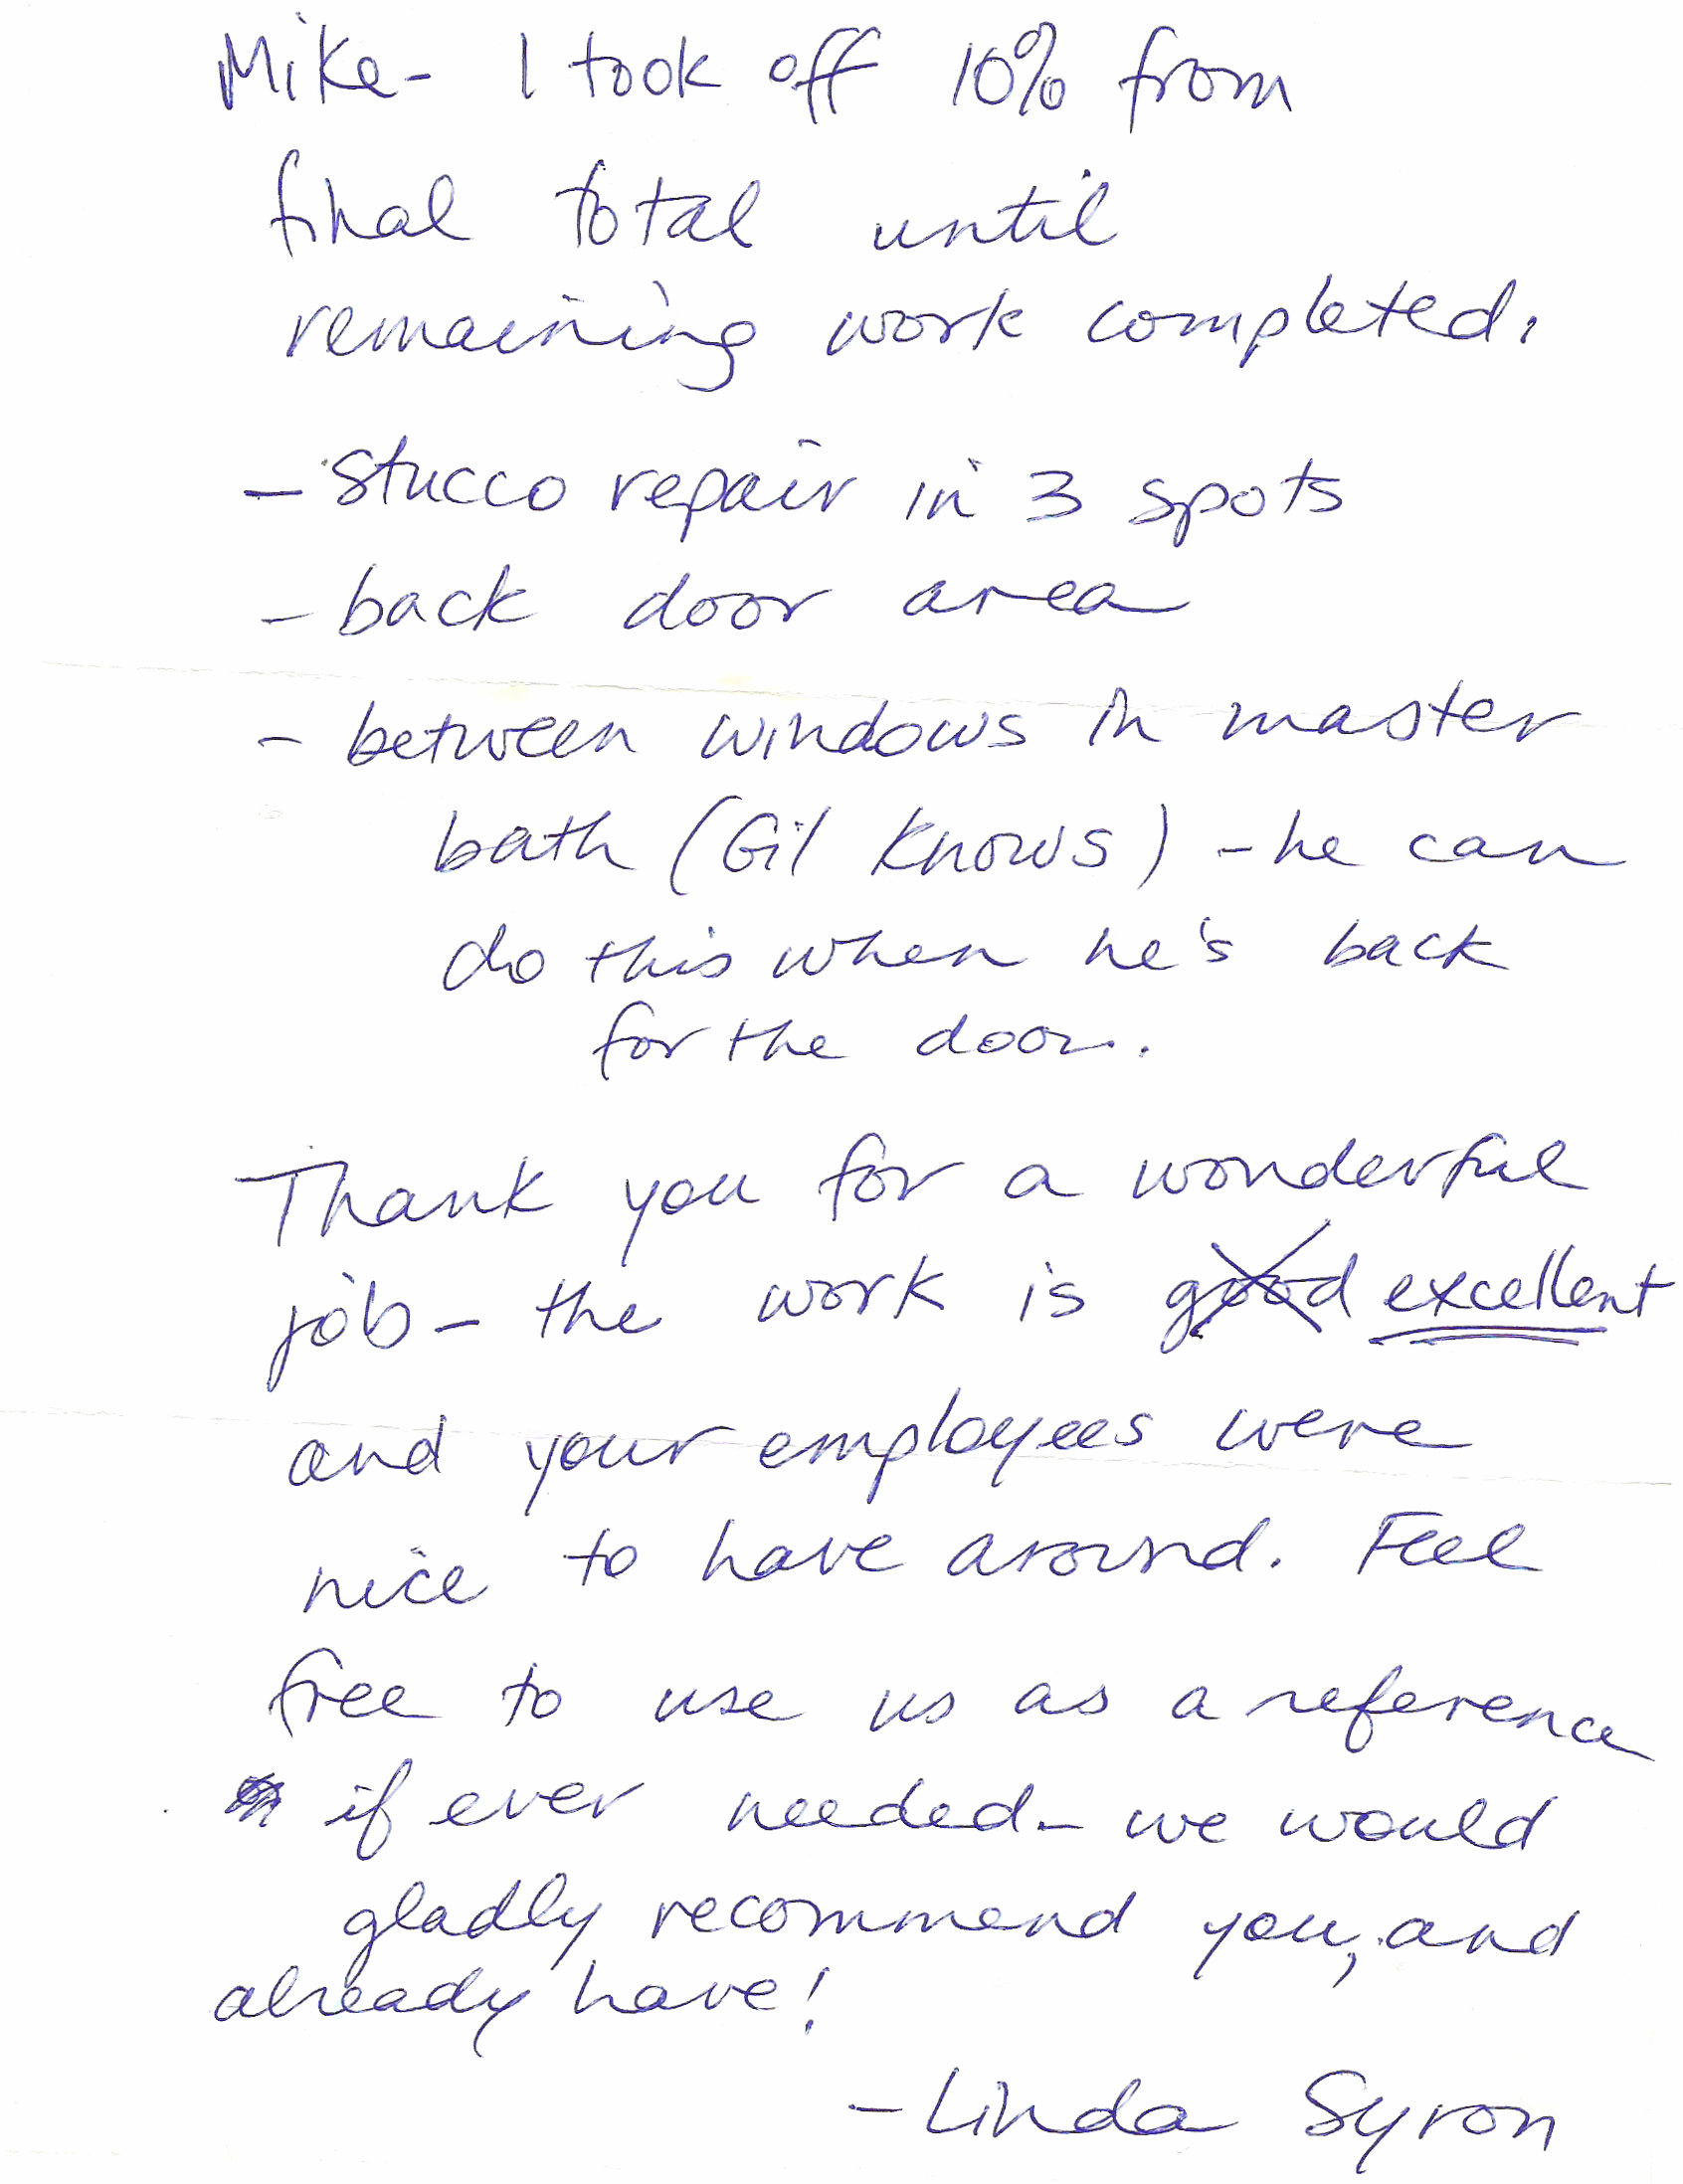 Mike - I took off 10% from
final total until
remaining work completed.
- stucco repair in 3 spots
- back door area
- between windows in master
bath (Gil knows) - he can
do this when he's back
for the door.
Thank you for a wonderful
job - the work is good excellent
and your employees were
nice to have around. Feel
free to use us as a reference
if ever needed - we would
gladly recommend you, and
already have!
- Linda Syron